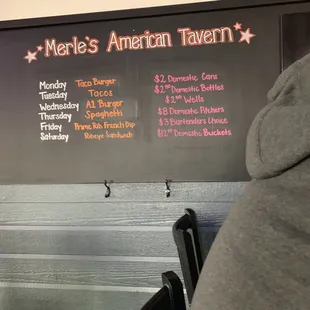 Merle's American Tavern
Monday Taco Burger
Tuesday Tacos
Wednesday A1 Burger
Thursday Spaghetti
Friday Prime Rib French Dip
Saturday Ribeye Sandwich
$2 Domestic Cans
$2.50 Domestic Bottles
$2.50 Wells
$8 Domestic Pitchers
$3 Bartenders Choice
$12.50 Domestic Buckets